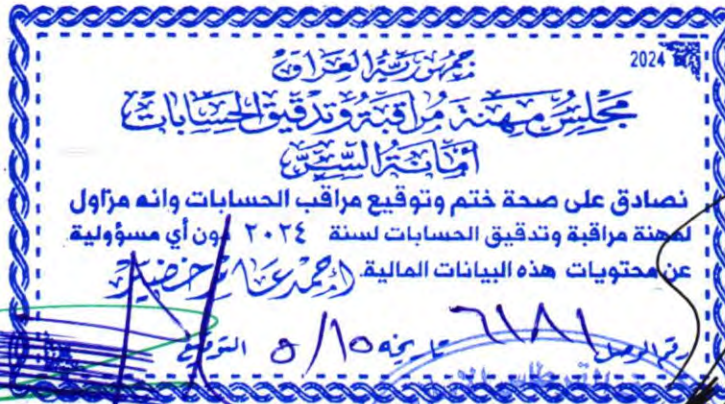 2024
جمهورية العراق
مجلس مهنة مراقبة وتدقيق الحسابات
أمانة السر
نصادق على صحة ختم وتوقيع مراقب الحسابات وانه مزاول
لمهنة مراقبة وتدقيق الحسابات لسنة ٢٠٢٤ دون أي مسؤولية
عن محتويات هذه البيانات المالية.
رقم الوصل ٦١٨١ تاريخه ٥/١٥ التوقيع